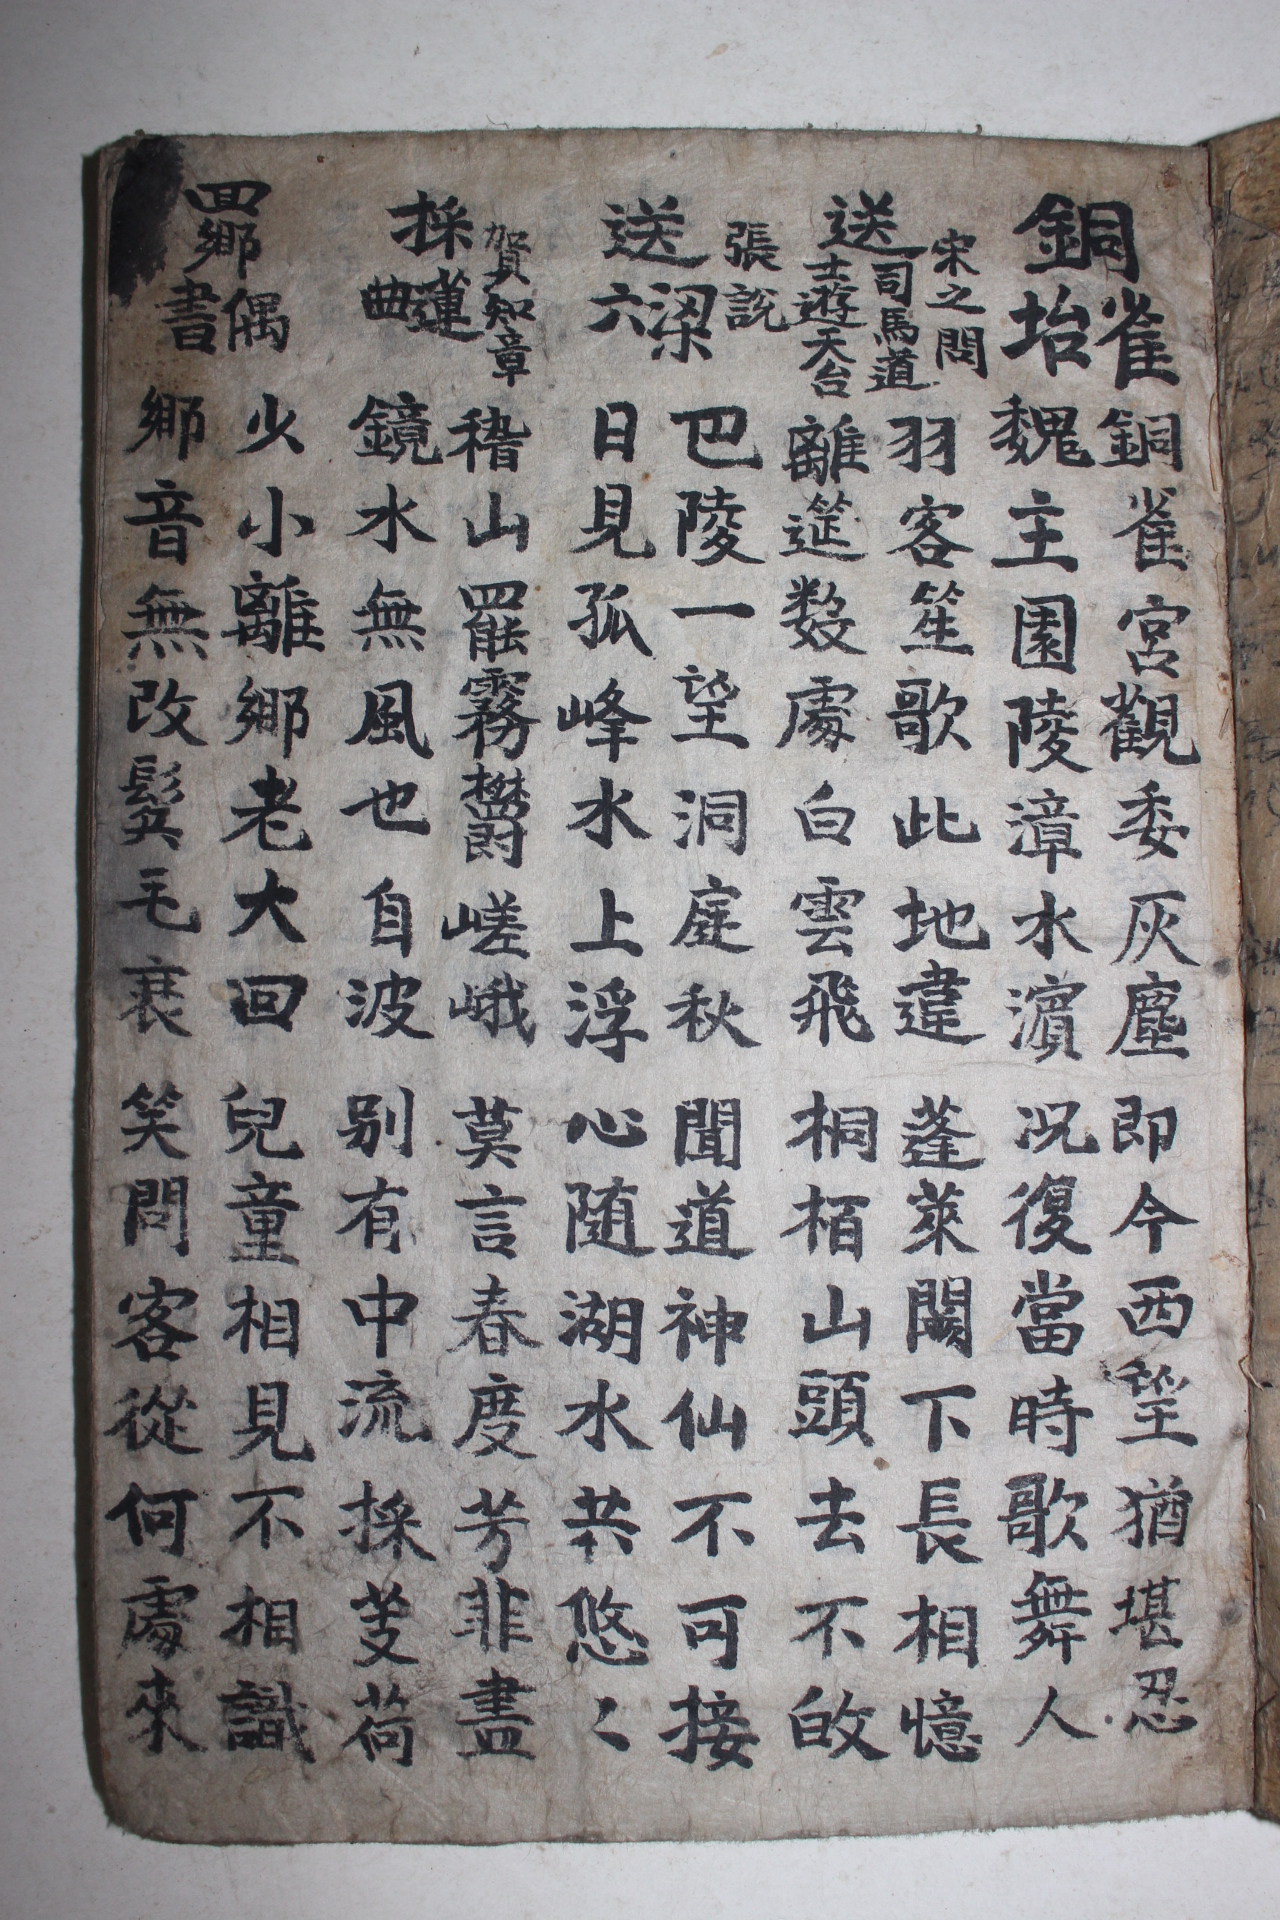 銅雀坮
銅雀宮觀委灰塵 即今西望猶堪忍
魏主園陵漳水濱 况復當時歌舞人
宋之問
送司馬道士遊天台
羽客笙歌此地違 蓬萊闕下長相憶
離筵数處白雲飛 桐栢山頭去不皈
張說
送梁六
巴陵一望洞庭秋 聞道神仙不可接
日見孤峰水上浮 心随湖水共悠〻
賀知章
採蓮曲
稽山罷霧鬱嵯峨 莫言春度芳菲盡
鏡水無風也自波 别有中流採芰荷
回鄉偶書
少小離鄉老大回 兒童相見不相識
鄉音無改鬂毛衰 笑問客從何處來